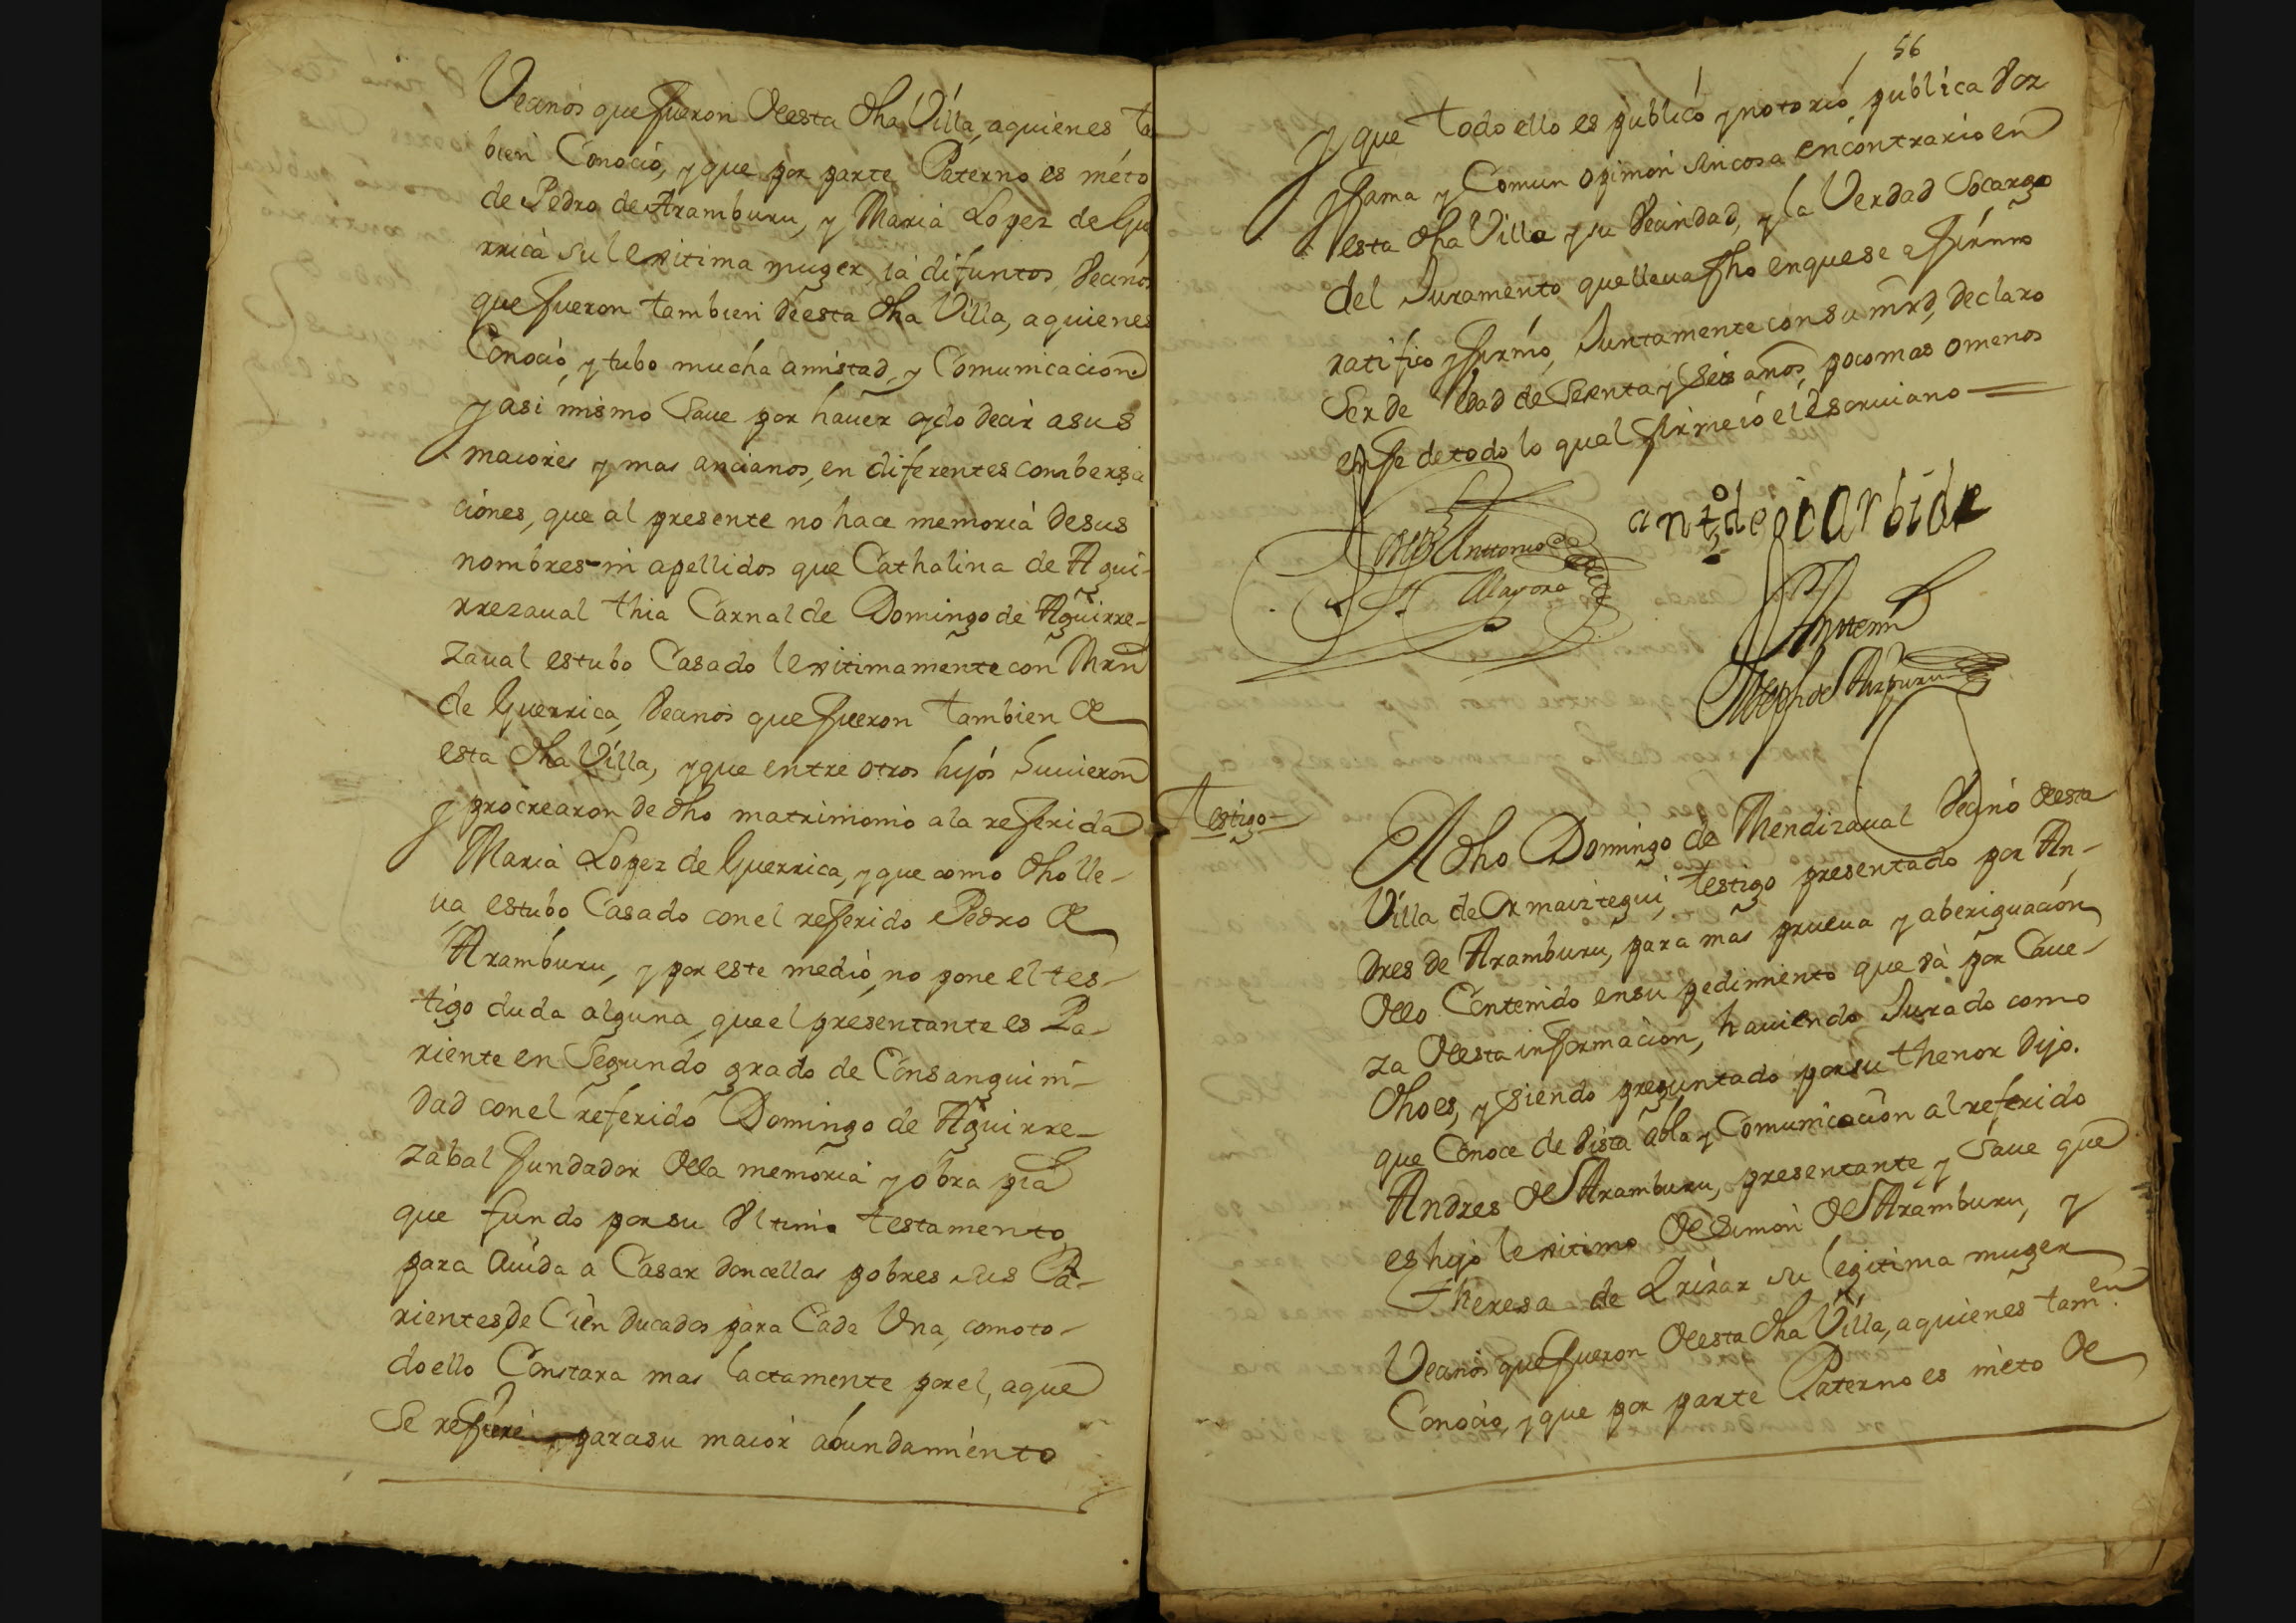 Vecinos que fueron desta dha Villa, a quienes ta
bien Conoció, y que por parte Paterno es nieto
de Pedro de Aramburu, y Maria Lopez de Gue
rrica su lexitima muger ia difuntos, Vecinos
que fueron tambien de esta dha Villa, a quienes
Conoció, y tubo mucha amistad, y Comunicacion
y asi mismo Saue por hauer oydo decir a sus
maiores y mas ancianos, en diferentes combersa
ciones, que al presente no hace memoria de sus
nombres ni apellidos que Cathalina de Agui-
rrezaual thia Carnal de Domingo de Aguirre-
zaual estubo Casado lexitimamente con Mrn
de Guerrica, Vecinos que fueron tambien de
esta dha Villa, y que entre otros hijos huuieron
y procrearon de dho matrimonio a la referida
Maria Lopez de Guerrica, y que como dho lle-
ua, estubo Casado con el referido Pedro de
Aramburu, y por este medio, no pone el tes-
tigo duda alguna que el presentante es Pa-
riente en Segundo grado de Consanguini-
dad con el referido Domingo de Aguirre-
zabal fundador della memoria y obra pia
que fundo por su Vltimo testamento
para Auida a Casar doncellas pobres sus Pa-
rientes, de Cien ducados para Cada Vna, como to-
do ello Constara mas lactamente por el, a que
Se refiere y para su maior abundamiento
56
y que todo ello es publico y notorio publica Voz
y fama y Comun opinion sin cosa en contrario en
esta dha Villa y su Vecindad, y la Verdad Socargo
del Juramento que lleua fho en que se afirmo
ratifico y firmó, Juntamente con su mrd, declaro
Ser de edad de Setenta y Seis años, poco mas o menos
en fe de todo lo qual firme io el Escriuano
Antonio de
Mayora
anto de oiarbide
Ante mi
Joseph de Aizpuru
Testigo
A dho Domingo de Mendizaual Vecino desta
Villa de Ormaiztegui, testigo presentado por An-
dres de Aramburu, para mas prueua y aberiguacion
dello Contenido en su pedimiento que va por Caue-
za desta informacion, hauiendo Jurado como
dho es, y siendo preguntado por su thenor dijo.
que Conoce de Vista abla y Comunicacion al referido
Andres de Aramburu, presentante y Saue que
es hijo lexitimo de Simon de Aramburu, y
Theresa de Lrizar su legitima muger
Vecinos que fueron desta dha Villa, a quienes tamen
Conocio, y que por parte Paterno es nieto de